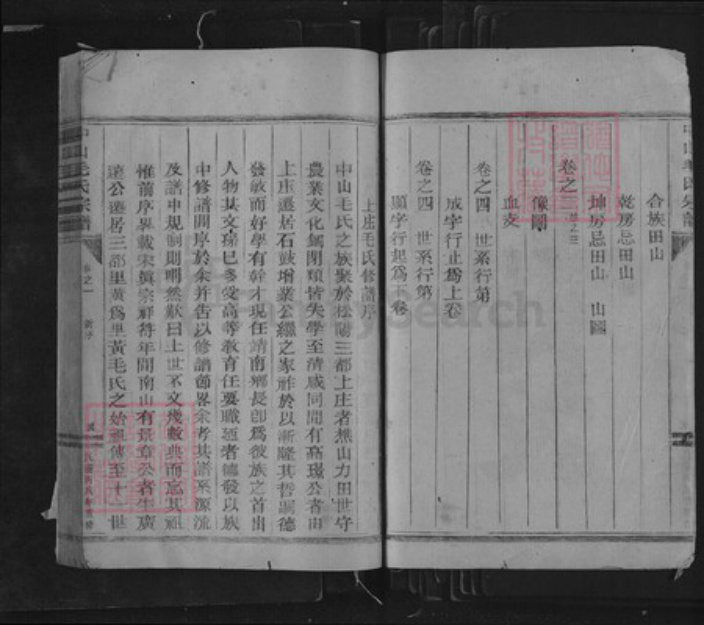 中山毛氏宗譜
合族田山
乾房忌田山
坤房忌田山 山圖
卷之三
像圖
血支
卷之四 世系行第
成字行止為上卷
卷之四 世系行第
顯字行起為下卷
上庄毛氏修譜序
中山毛氏之族聚於松陽三都上庄者樵山力田世守
農業文化錮閉類皆失學至清咸同間有高環公者由
上庄遷居石鼓增業公繼之家離於以漸隆其哲嗣德
發敏而好學有幹才現任靖南鄉長卽為彼族之首出
人物其文孫已多受高等教育任要職迺者德發以族
中修譜問序於余并告以修譜節畧余考其譜系源流
及譜中規制則明然歎曰上世不文幾數典而忘其祖
惟前序畧載宋眞宗祥符年間南山有景章公者生廣
遠公遷居三都里黃為里黃毛氏之始祖傳至十一世
中山毛氏宗譜
卷之一
新序